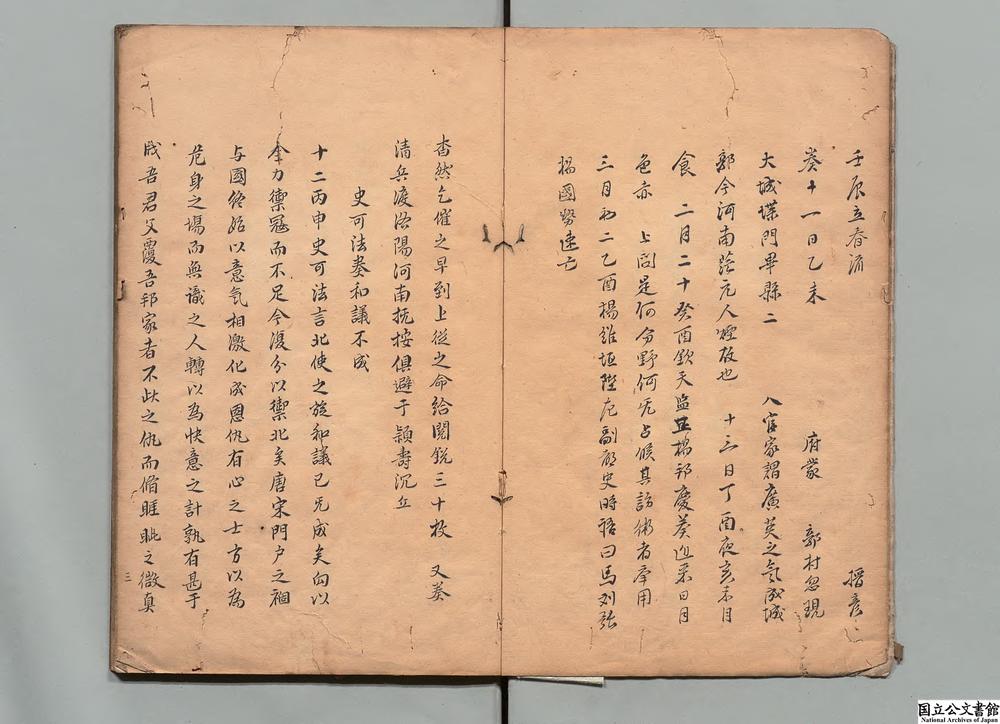 壬辰立春流 撫彥
奏十一日乙未 府蒙 郭村忽現
大城堞門畢縣二 人官家謂廣莫之氣成城
郭今河南蓝元人煙故也 十三日丁酉夜亥末月
食 二月二十癸酉欽天监正楊邦慶奏迩来日月
色赤 上問是何分野何无占候其訪術者奉用
三月初二乙酉楊維垣陞左副都史時語曰馬刘張
楊國勢速亡
杳然乞催之早到上從之命給関銃三十枚 又奏
清兵渡洛陽河南抚按俱避于潁壽沉丘
史可法奏和議不成
十二丙申史可法言北使之旋和議已无成矣向以
全力禦寇而不足今復分以禦北矣唐宋門户之祸
与國終始以意氣相激化成恩仇有心之士方以為
危身之場而無識之人轉以為快意之計孰有甚于
戕吾君父覆吾邦家者不此之仇而脩睚眦之微真
三
国立公文書館
National Archives of Japan